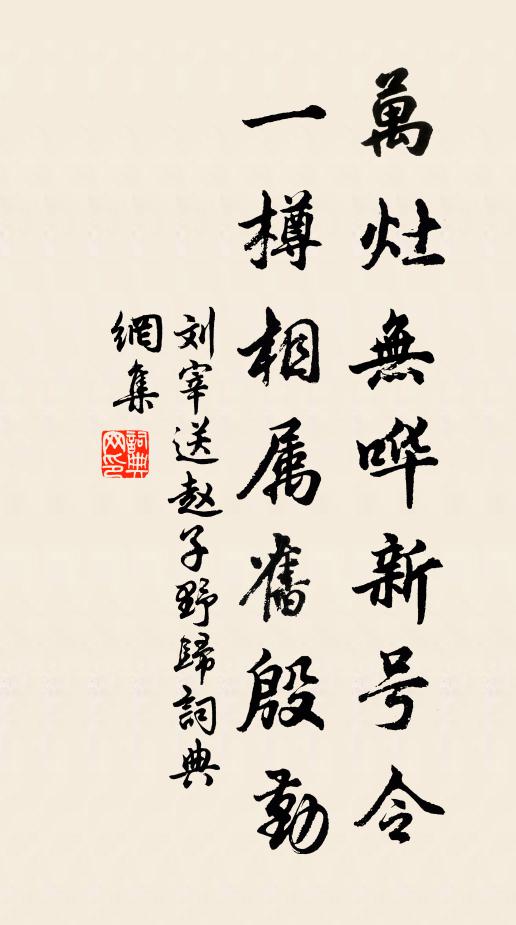 萬灶無哗新号令
一樽相属舊殷勤
刘宰送赵子野歸詞典
網集
詞典網印